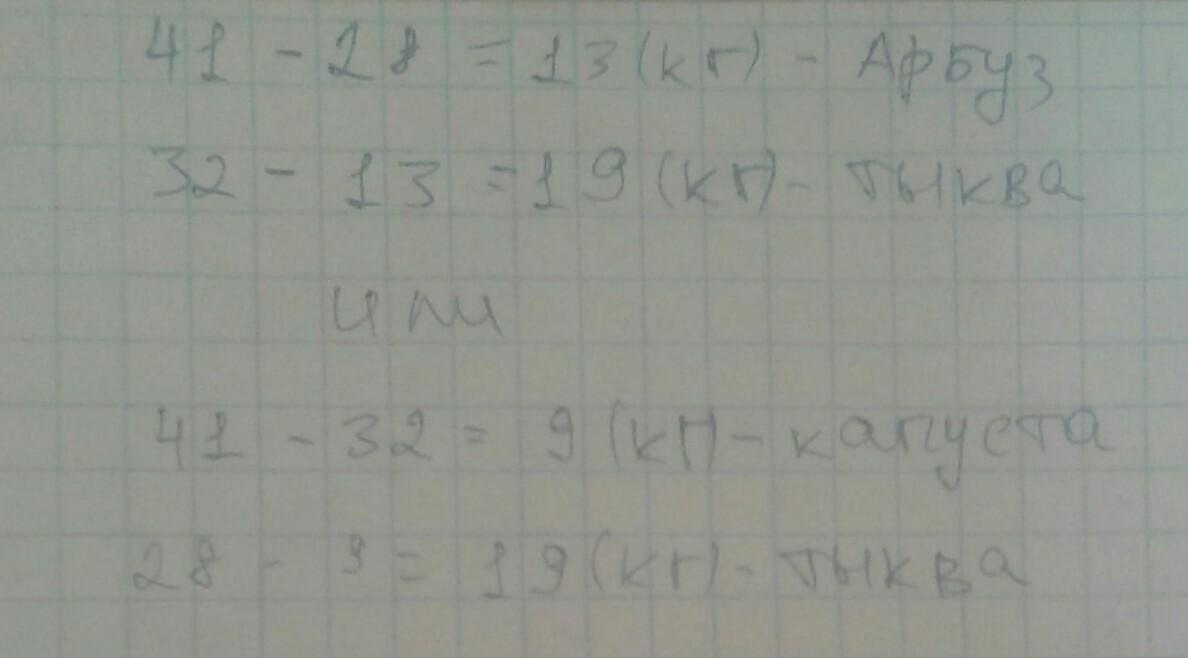 41 - 28 = 13 (кг) - Арбуз
32 - 13 = 19 (кг) - тыква
или
41 - 32 = 9 (кг) - капуста
28 - 9 = 19 (кг) - тыква